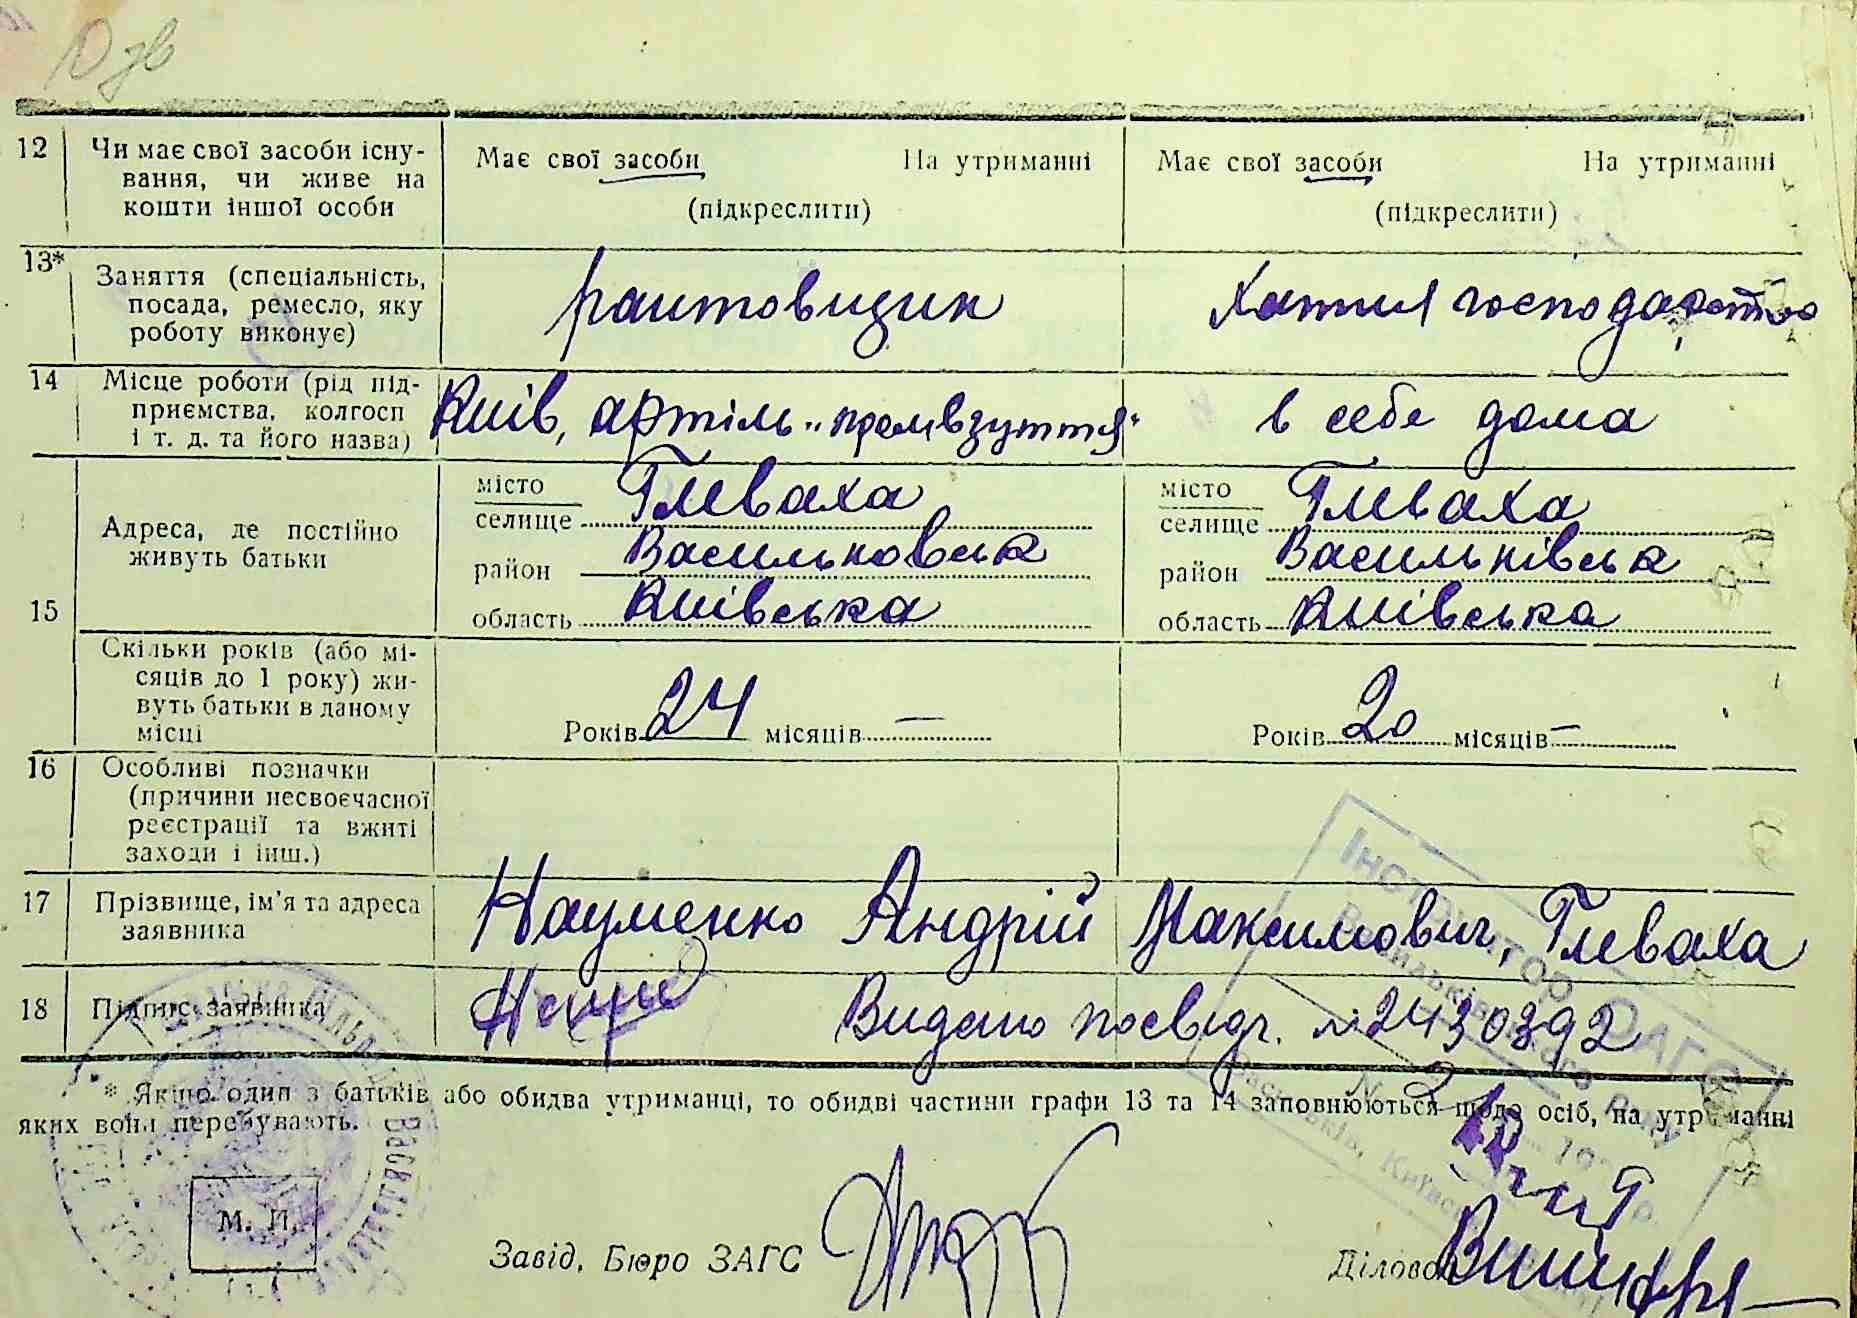 12 Чи має свої засоби існу-
вання, чи живе на
кошти іншої особи
Має свої засоби На утриманні
(підкреслити)
Має свої засоби На утриманні
(підкреслити)
13* Заняття (спеціальність,
посада, ремесло, яку
роботу виконує)
рантовщик
Хатнея господарство
14 Місце роботи (рід під-
приємства, колгосп
і т. д. та його назва)
Київ, артіль „промвзуття“
в себе дома
15 Адреса, де постійно
живуть батьки
місто
селище Глеваха
район Васильковськ
область Київська
місто
селище Глеваха
район Васильківськ
область Київська
Скільки років (або мі-
сяців до 1 року) жи-
вуть батьки в даному
місці
Років 24 місяців —
Років 20 місяців —
16 Особливі позначки
(причини несвоєчасної
реєстрації та вжиті
заходи і інш.)
17 Прізвище, ім'я та адреса
заявника
Науменко Андрій Максимович, Глеваха
18 Підпис заявника
Видано посвідч. № 2430392
* Якщо один з батьків або обидва утриманці, то обидві частини графи 13 та 14 заповнюються щодо осіб, на утриманні
яких вони перебувають.
Інспектор ЗАГС
М. П.
Завід. Бюро ЗАГС
Діловод